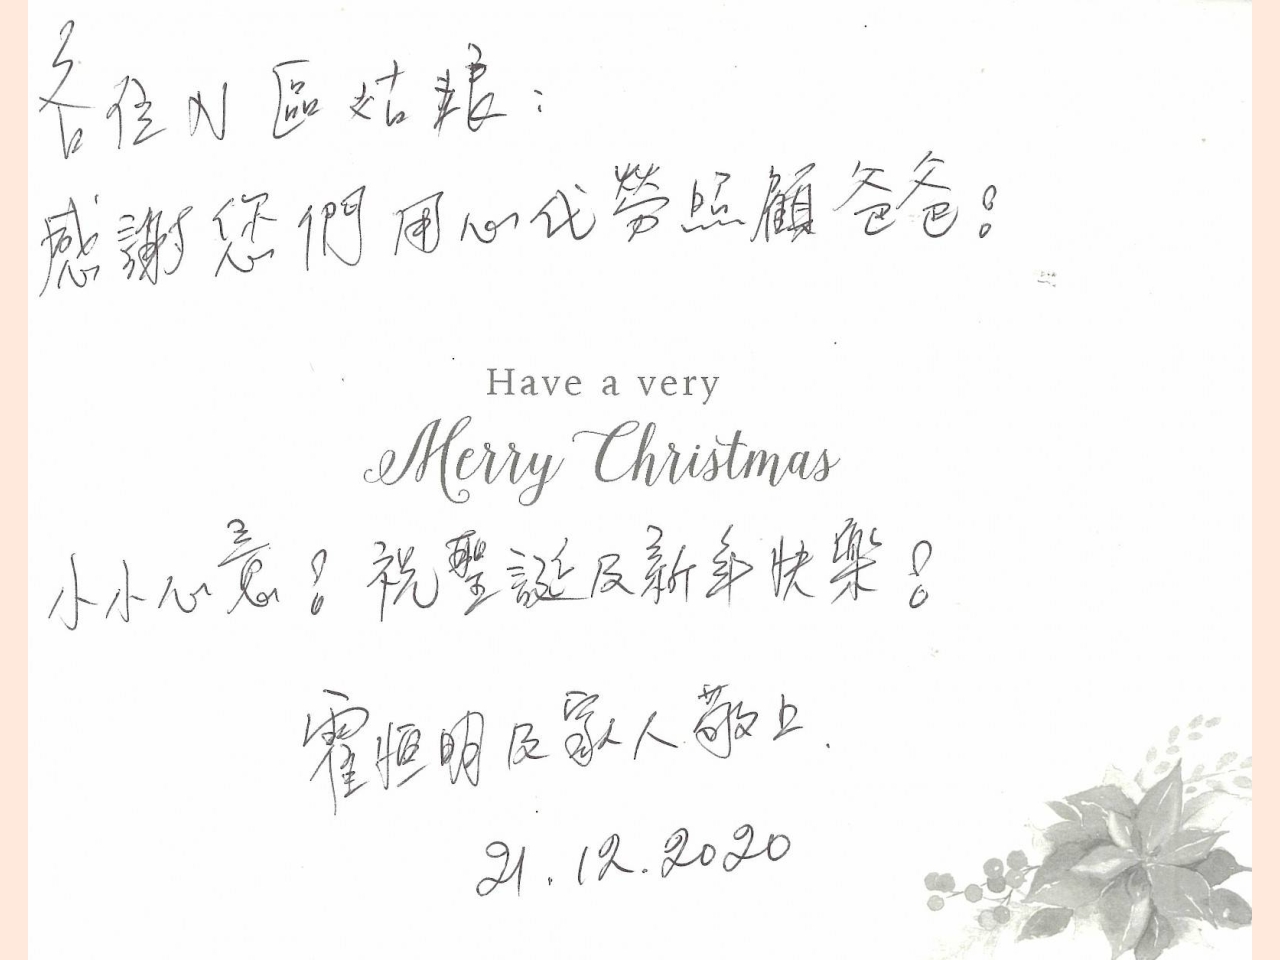 各位N區姑娘：
感謝您們用心代勞照顧爸爸！
Have a very
Merry Christmas
小小心意！祝聖誕及新年快樂！
霍恒明及家人敬上.
21.12.2020